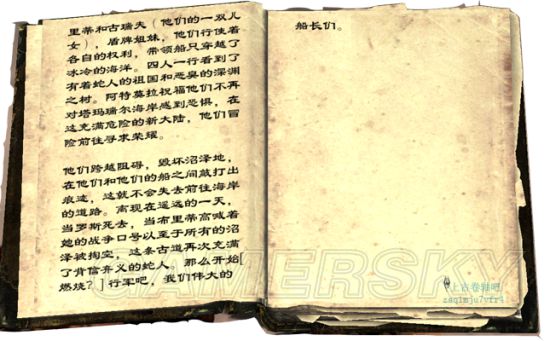 里蒂和古瑞夫（他们的一双儿
女），盾牌姐妹，他们行使着
各自的权利，带领船只穿越了
冰冷的海洋。四人一行看到了
有着蛇人的祖国和恶臭的深渊
之村。阿特莫拉祝福他们不再
对塔玛瑞尔海岸感到恐惧，在
这充满危险的新大陆，他们冒
险前往寻求荣耀。
他们跨越阻碍，毁坏沼泽地，
在他们和他们的船之间敲打出
痕迹，这就不会失去前往海岸
的道路。离现在遥远的一天，
当罗斯死去，当布里蒂高喊着
她的战争口号以至于所有的沼
泽被掏空，这条古道再次充满
了背信弃义的蛇人。那么开始[
燃烧？]行军吧，我们伟大的
船长们。
GAMERSKY
上古卷轴吧
zaqimju7yfr4